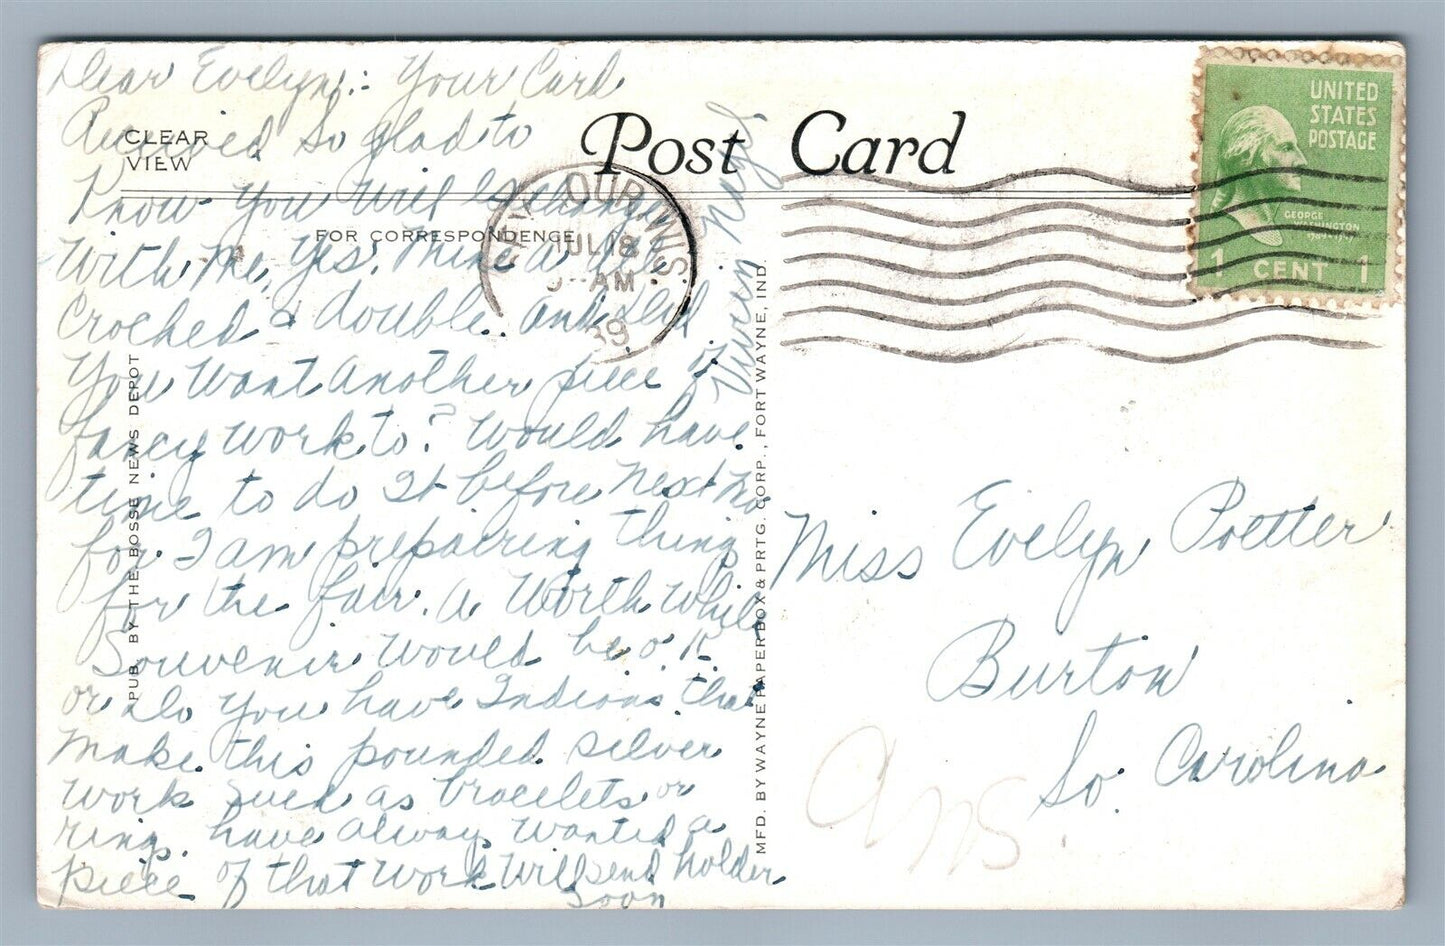 Dear Evelyn:- Your Card
Received So glad to
Know You will Exchange
With Me, Yes. Mine a
Croched & double. and did
You Want Another piece of
fancy work to? Would have
time to do It before Next Mo
for I am prepairing things
for the fair. A Worth While
Souvenir would be o.K.
or do You have Indians that
Make this pounded silver
Work Such as bracelets or
ring. have alway wanted a
piece of that Work Will send holder
Soon
CLEAR
VIEW
Post Card
FOR CORRESPONDENCE
PUB. BY THE BOSSE NEWS DEPOT
MFD. BY WAYNE PAPER BOX & PRTG. CORP., FORT WAYNE, IND.
WIS.
JUL 18
AM
39
UNITED
STATES
POSTAGE
GEORGE
WASHINGTON
1 CENT 1
Miss Evelyn Poetter
Burton
So. Carolina
Ans